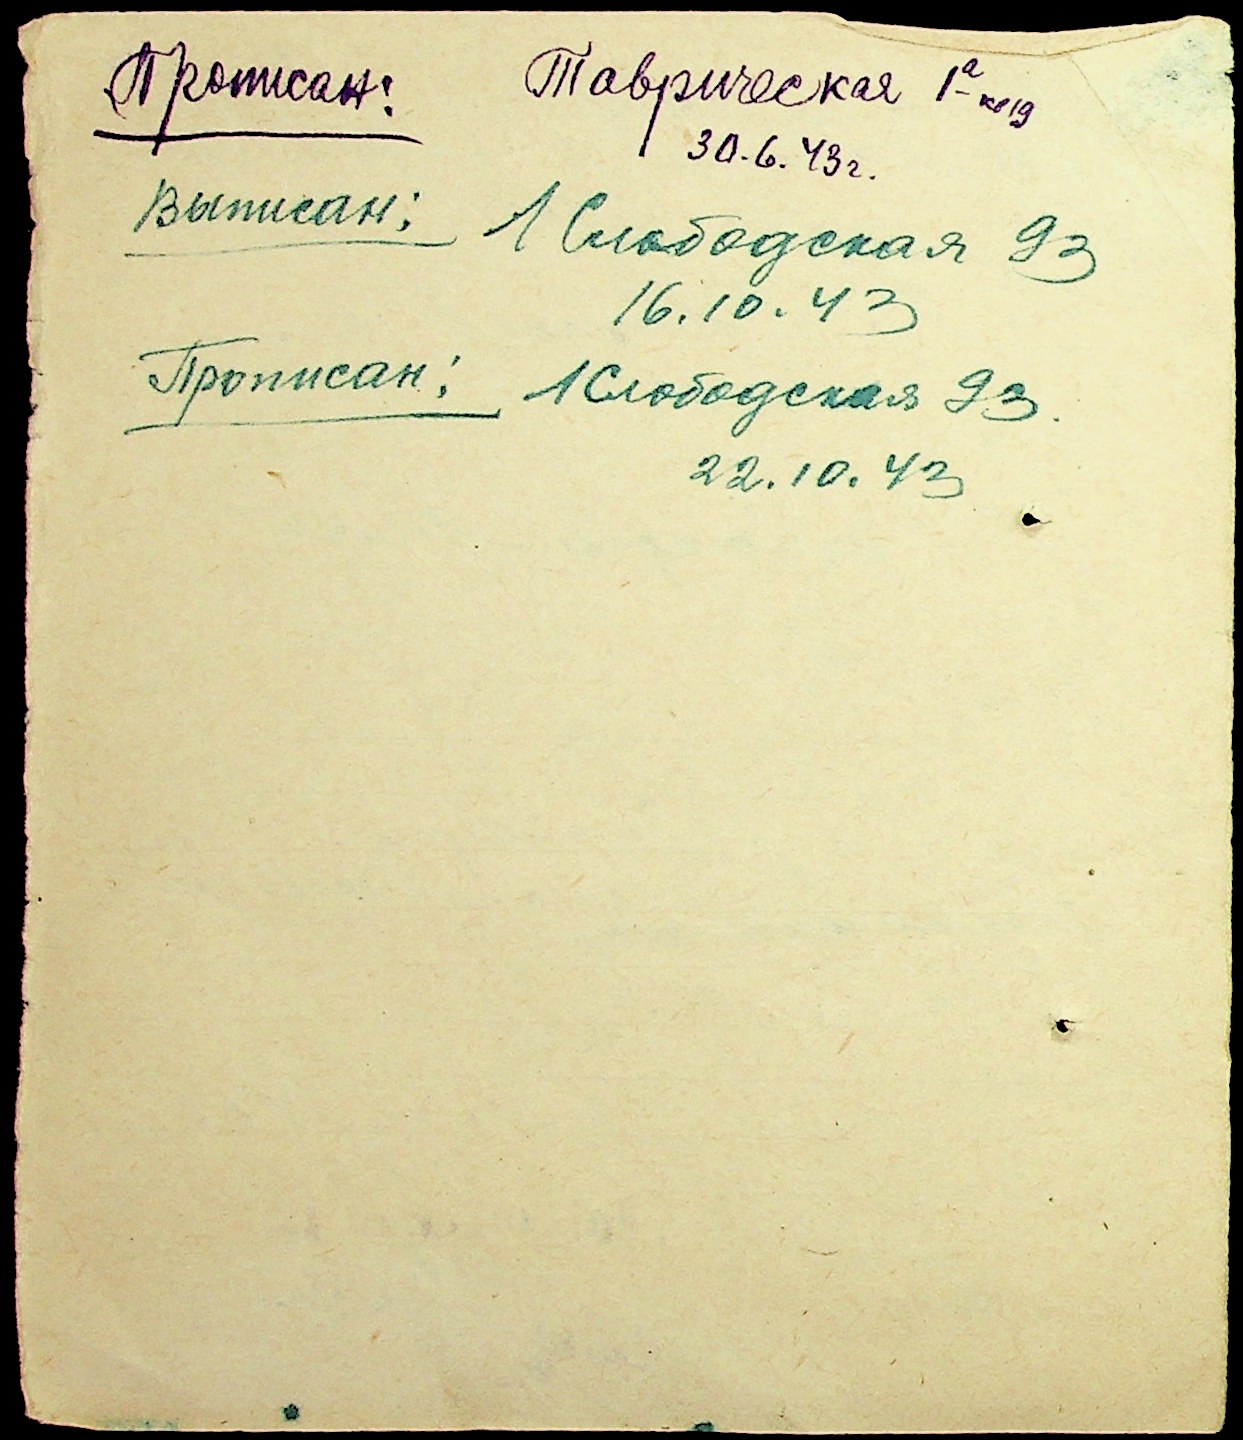 Прописан: Таврическая 1а кв 19
30.6.43г.
Выписан: 1 Слободская 93
16.10.43
Прописан: 1 Слободская 93.
22.10.43